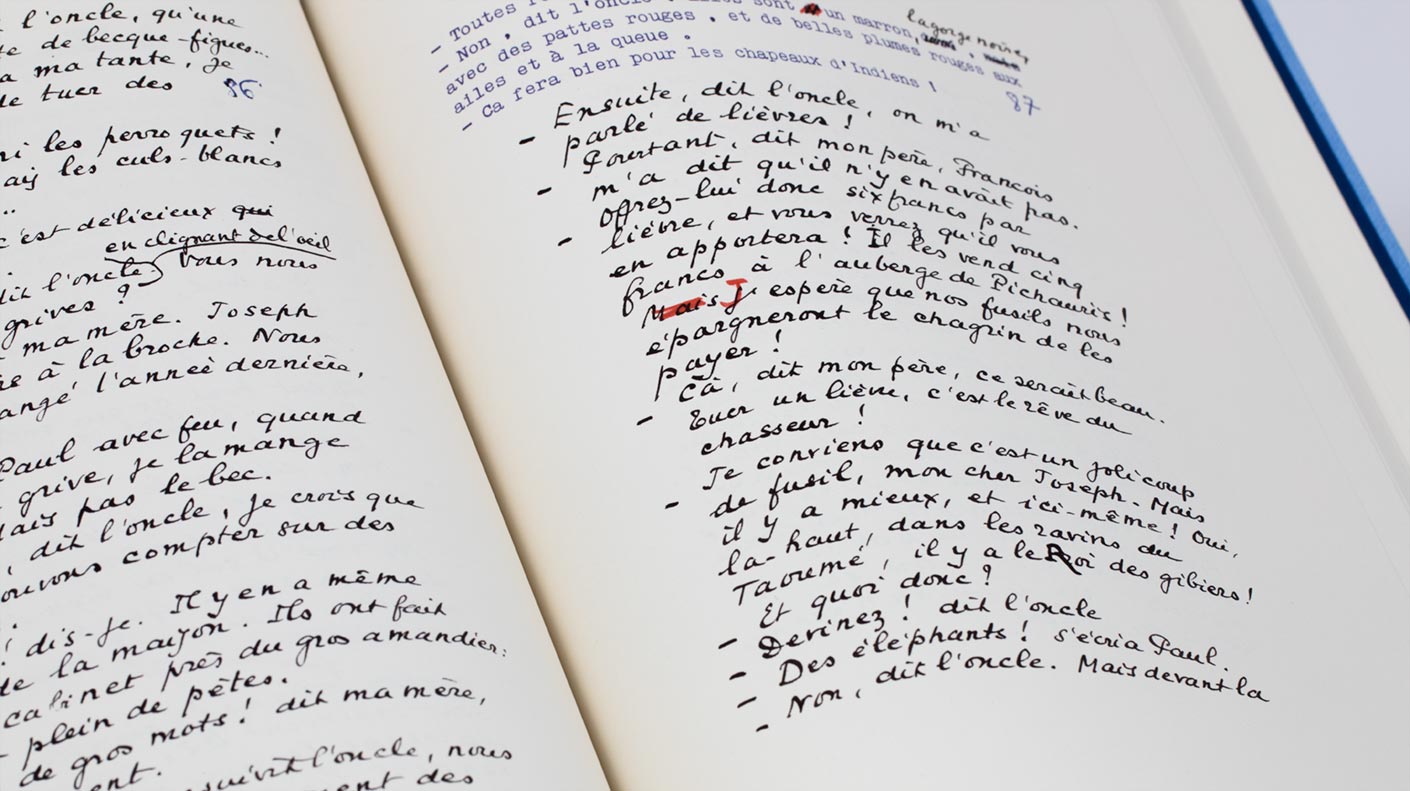 l'oncle, qu'une
de becque-figues..
a ma tante, je
de tuer des
86
ni les perroquets !
les culs-blancs
..
c'est délicieux qui
en clignant de l'oeil
dit l'oncle. Vous nous
grives ?
ma mère. Joseph
à la broche. Nous
angé, l'année dernière,
Paul avec feu, quand
grive, je la mange
mais pas le bec.
, dit l'oncle, je crois que
ouvons compter sur des
! dis-je. Il y en a même
de la maison. Ils ont fait
cabinet près du gros amandier:
plein de pètes.
de gros mots ! dit ma mère,
ent.
suivit l'oncle, nous
ment des
- Toutes
la gorge noire,
- Non, dit l'oncle. sont un marron,
avec des pattes rouges, et de belles plumes rouges aux
ailes et à la queue.
- Ca fera bien pour les chapeaux d'Indiens !
87
- Ensuite, dit l'oncle, on m'a
parlé de lièvres !
- Pourtant, dit mon père, François
m'a dit qu'il n'y en avait pas.
- Offrez-lui donc six francs par
lièvre, et vous verrez qu'il vous
en apportera ! Il les vend cinq
francs à l'auberge de Pichauris !
Mais J'espère que nos fusils nous
épargneront le chagrin de les
payer !
- Cà, dit mon père, ce serait beau.
Tuer un lièvre, c'est le rêve du
chasseur !
- Je conviens que c'est un joli coup
de fusil, mon cher Joseph. Mais
il y a mieux, et ici-même ! Oui,
là-haut, dans les ravins du
Taoumé, il y a le Roi des gibiers !
- Et quoi donc ?
- Devinez ! dit l'oncle
- Des éléphants ! s'écria Paul.
- Non, dit l'oncle. Mais devant la